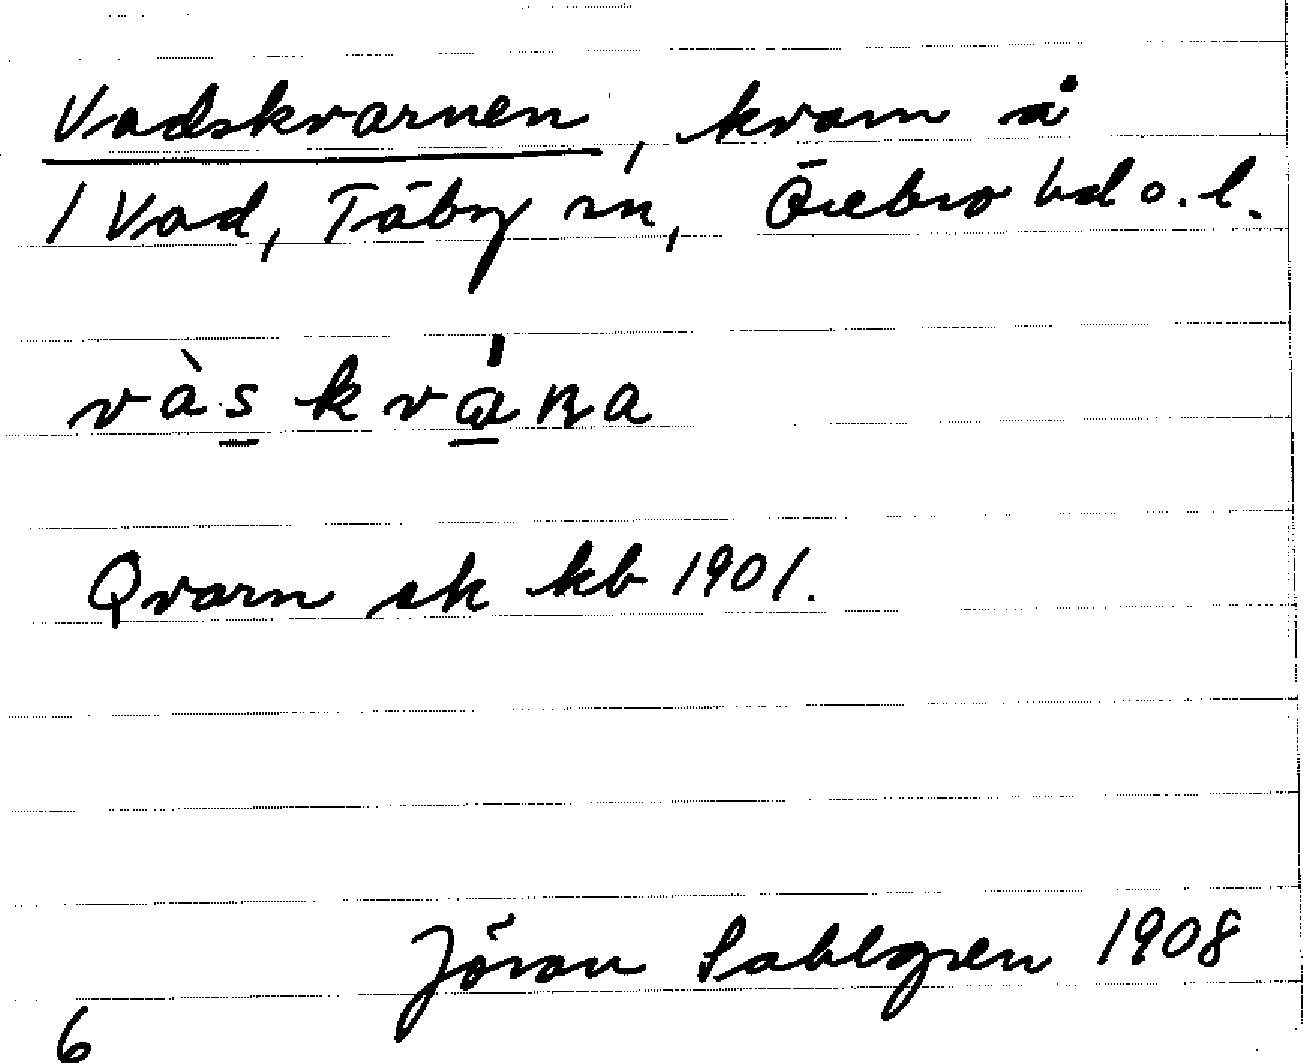 Vadskvarnen, kvarn å
1 Vad, Täby sn, Örebro hd o. l.
vàskvána
Qvarn sk kb 1901.
Jöran Sahlgren 1908
6